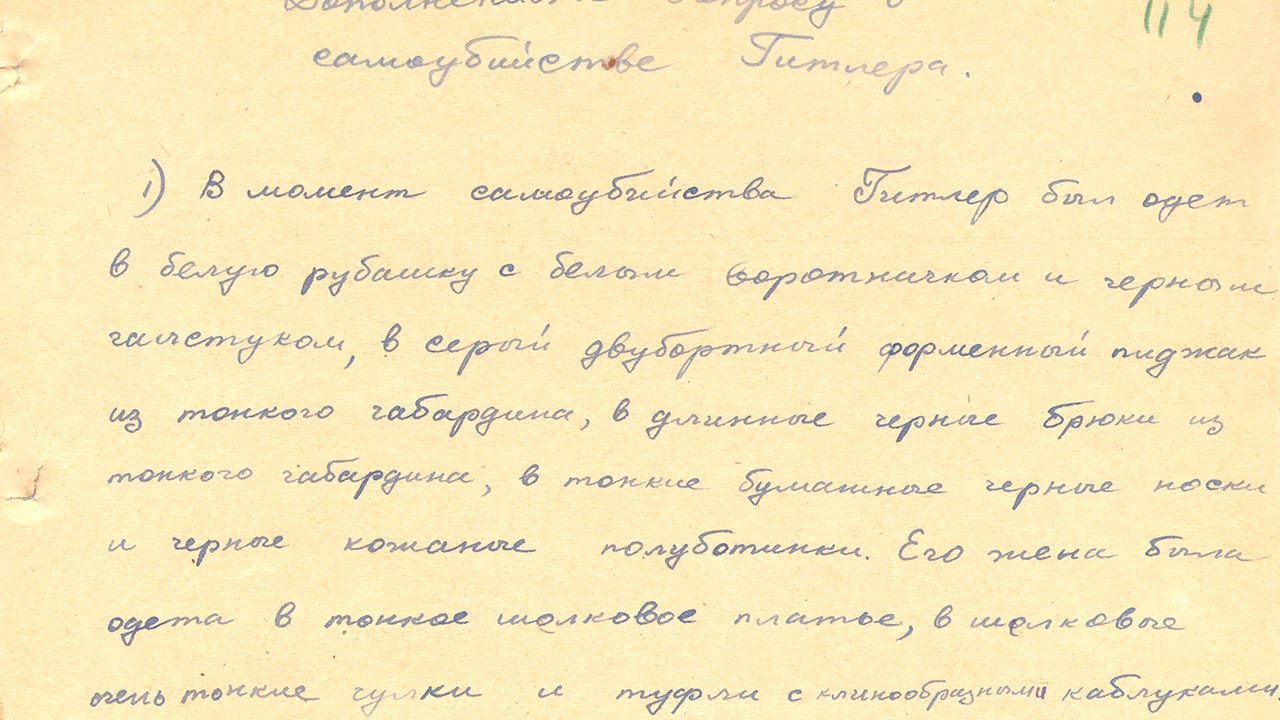 Дополнение к вопросу о
самоубийстве Гитлера.
114
1) В момент самоубийства Гитлер был одет
в белую рубашку с белым воротничком и черным
галстуком, в серый двубортный форменный пиджак
из тонкого габардина, в длинные черные брюки из
тонкого габардина, в тонкие бумажные черные носки
и черные кожаные полуботинки. Его жена была
одета в тонкое шолковое платье, в шолковые
очень тонкие чулки и туфли с клинообразными каблуками.